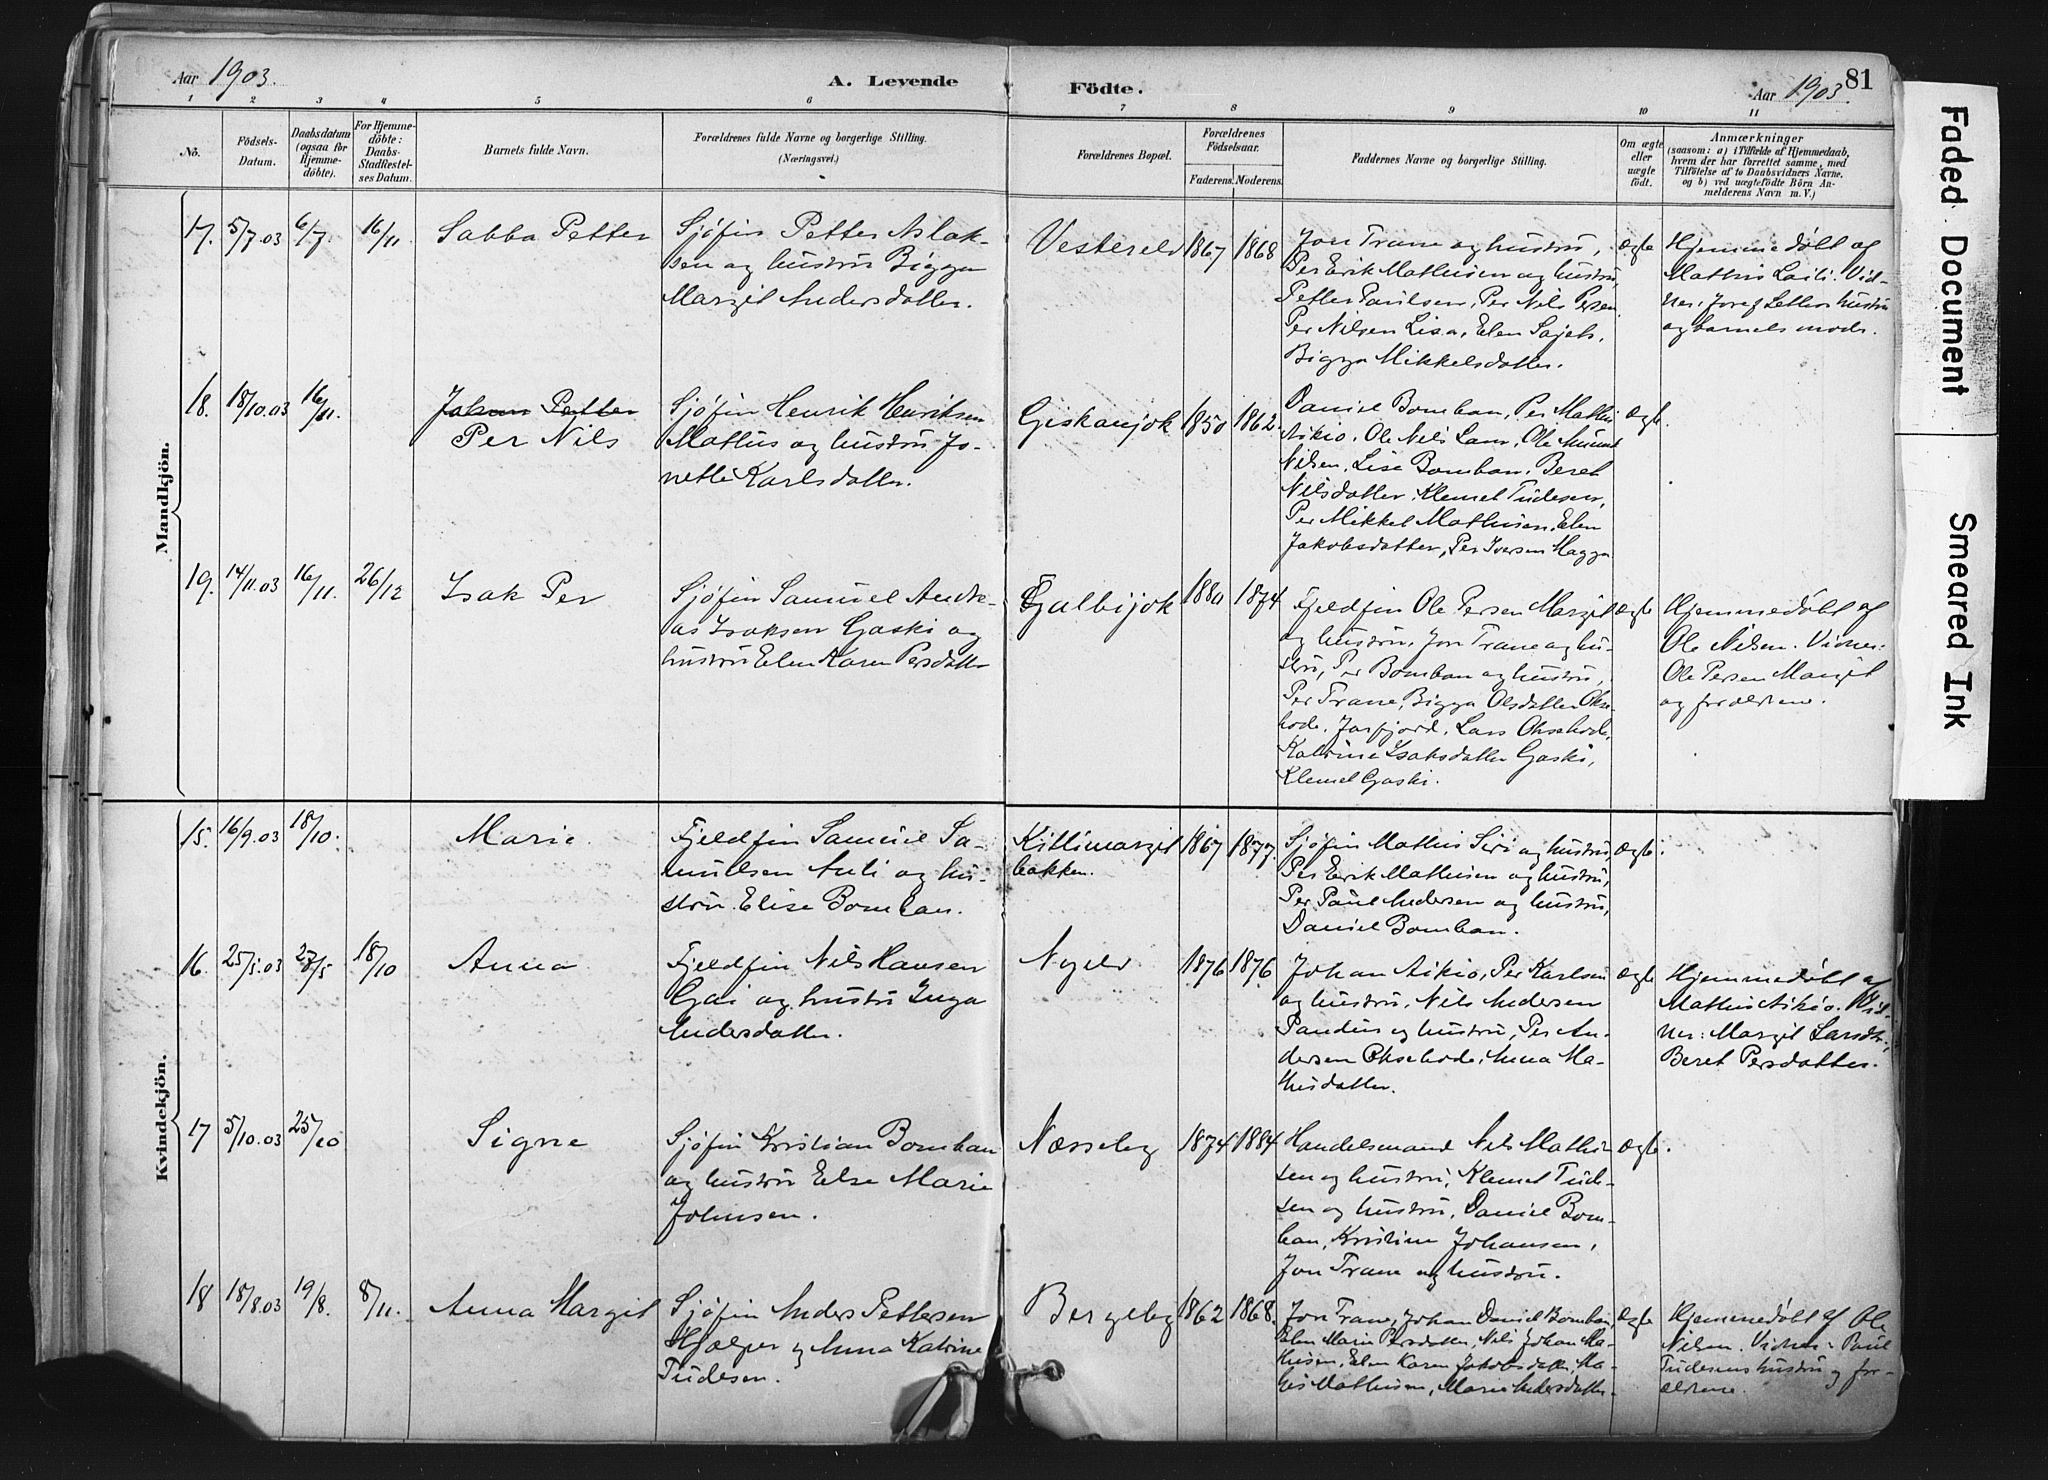 Aar 1903.
A. Levende
Födte.
Aar 1903.
81
1 2 3 4 5 6 7 8 9 10 11
No.
Födsels-
Datum.
Daabsdatum
(ogsaa for
Hjemme-
döbte).
For Hjemme-
döbte:
Daabs-
Stadfæstel-
ses Datum.
Barnets fulde Navn.
Forældrenes fulde Navne og borgerlige Stilling.
(Næringsvei.)
Forældrenes Bopæl.
Forældrenes
Födselsaar.
Faderens. Moderens.
Faddernes Navne og borgerlige Stilling.
Om ægte
eller
uægte
födt.
Anmærkninger
(saasom: a) i Tilfælde af Hjemmedaab,
hvem der har forrettet samme, med
Tilföielse af to Daabsvidners Navne.
og b) ved uægtefödte Börn An-
melderens Navn m. V.)
Mandkjön.
17. 5/7.03 6/7. 16/11. Sabba Petter
Sjøfin Petter Aslak-
sen og hustru Bigga
Margit Andersdatter.
Vestereld 1867 1868
Jon Trane og hustru,
Per Erik Mathisen og hustru,
Petter Paulsen, Per Nils Persen
Per Nilsen Lisa, Elen
Bigga Mikkelsdatter.
ægte
Hjemmedøbt af
Mathis Vid-
ner: hustru
og barnets moder.
18. 18/10.03 16/11. Johan Petter
Per Nils
Sjøfin Henrik Henriksen
Mathus og hustru Jo-
nette Karlsdatter.
Giskanjok 1850 1862.
Daniel Bomban, Per Mathis
Aikio, Ole Nils Ole
Nilsen, Lise Bomban, Beret
Nilsdatter, Klemet Tudesen,
Per Mikkel Mathisen, Elen
Jakobsdatter, Per Iversen Magga
ægte.
19. 14/11.03 16/11. 26/12 Isak Per
Sjøfin Samuel Andre-
as Isaksen Gaski og
hustru Elen Karen Persdatter
Galbijok 1880 1874
Fjeldfin Ole Persen Margit
og hustru, Jon Trane og hu-
stru, Per Bomban og hustru,
Per Trane, Bigga Olsdatter Okse-
hode, Jarfjord, Lars Oksehode,
Katrine Isaksdatter Gaski,
Klemet Gaski.
ægte
Hjemmedøbt af
Ole Nilsen. Vidner:
Ole Persen Margit
og forældrene.
Kvindekjön.
15. 16/9.03 18/10. Marie.
Fjeldfin Samuel Sa-
muelsen Auti og hu-
stru Elise Bomban.
Kittimargit
bakken.
1867 1877.
Sjøfin Mathis Siri og hustru,
Per Erik Mathisen og hustru,
Per Paul Andersen og hustru,
Daniel Bomban.
ægte.
16. 25/5.03 18/10 Anna
Fjeldfin Nils Hansen
Gai og hustru Inga
Andersdatter.
Nyelv 1876 1876
Johan Aikio, Per Karlsen
og hustru, Nils Andersen
og hustru, Per An-
dersen Oksehode, Anna Ma-
thisdatter.
ægte
Hjemmedøbt af
Mathis Aikio. Vid-
ner: Margit Larsdtr.,
Beret Persdatter.
17 5/10.03 25/10 Signe
Sjøfin Kristian Bomban
og hustru Else Marie
Johnsen.
Næsseby 1874 1884
Handelsmand Nils Mathi-
sen og hustru, Klemet Tude-
sen og hustru, Daniel Bom-
ban, Kristine Johansen,
Jon Trane og hustru.
ægte.
18 18/8.03 19/8. 8/11. Anna Margit
Sjøfin Anders Pettersen
Hjelper og Anna Katrine
Tudesen.
Bergeby 1862 1868.
Jon Trane, Johan Daniel Bomban,
Elen Marie Persdatter, Nils Johan Ma-
thisen, Elen Karen Jakobsdatter, Ma-
this Mathisen, Marie Andersdatter.
ægte
Hjemmedøbt af Ole
Nilsen. Vidner: Paul
Tudesens hustru og for-
ældrene.
Faded Document
Smeared Ink